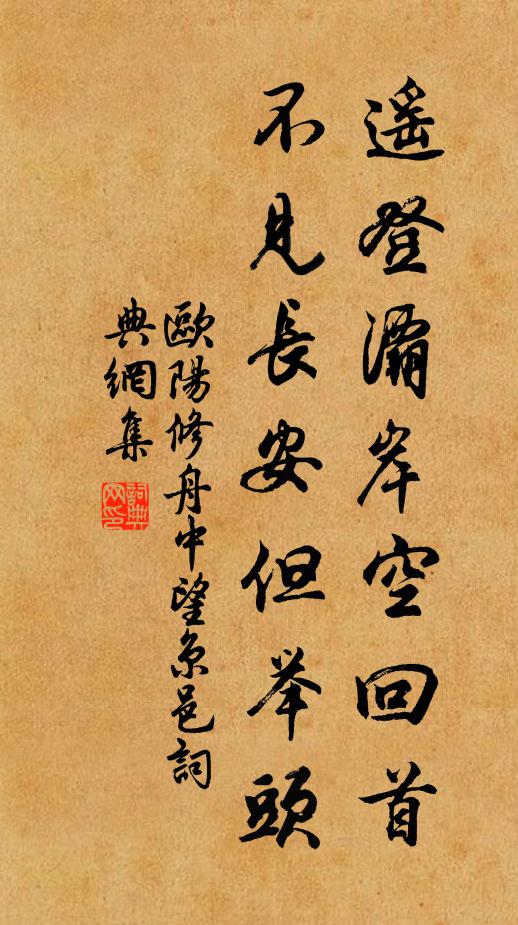 遥登灞岸空回首
不見長安但举頭
歐陽修舟中望京邑詞
典網集
詞典網印